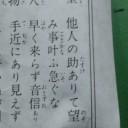 他人の助ありて望
み事叶ふ急ぐな
早く来らず音信あり
手近にあり見えず